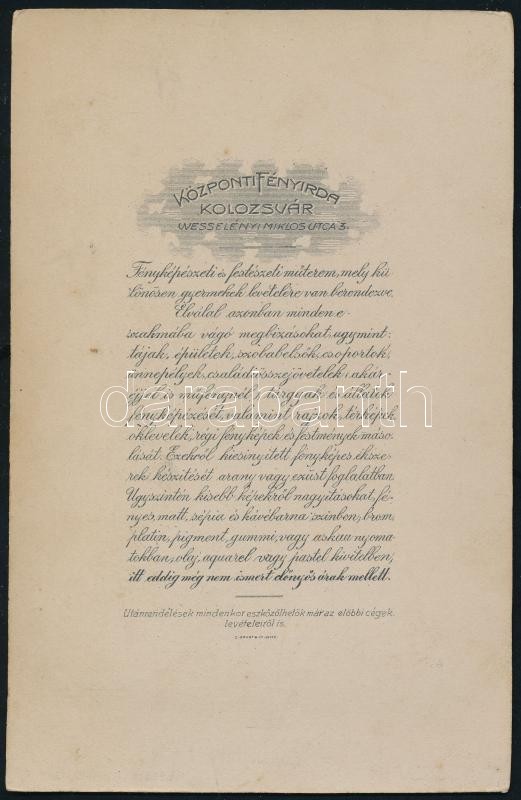 KÖZPONTI FÉNYIRDA
KOLOZSVÁR
WESSELÉNYI MIKLOS UTCA 3.
Fényképészeti és festészeti műterem, mely kü
lönösen gyermekek levételére van berendezve.
Elvállal azonban minden e-
szakmába vágó megbizásokat, ugymint:
tájak, épületek, szobabelsők, csoportok,
ünnepélyek, családösszejövetelek (akár
éjjel is műfénynél), tárgyak és állatok
fényképezését, valamint rajzok, térképek
oklevelek, régi fényképek és festmények máso-
lását. Ezekről kicsinyitett fényképes éksze-
rek készitését arany vagy ezüst foglalatban.
Ugyszintén kisebb képekről nagyitásokat, fé-
nyes, matt, sépia és kávébarna szinben; brom,
platin, pigment, gummi, vagy askau nyoma-
tokban; olaj, aquarel vagy pastel kivitelben;
itt eddig még nem ismert előnyős árak mellett.
Utánrendelések mindenkor eszközölhetők már az előbbi cégek
levételeiről is.
darabanth